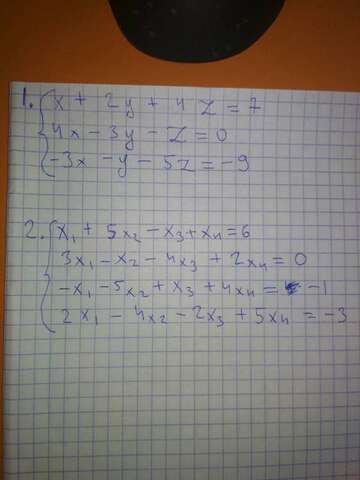 1. x + 2y + 4z = 7
4x - 3y - z = 0
-3x - y - 5z = -9
2. x₁ + 5x₂ - x₃ + x₄ = 6
3x₁ - x₂ - 4x₃ + 2x₄ = 0
-x₁ - 5x₂ + x₃ + 4x₄ = -1
2x₁ - 4x₂ - 2x₃ + 5x₄ = -3